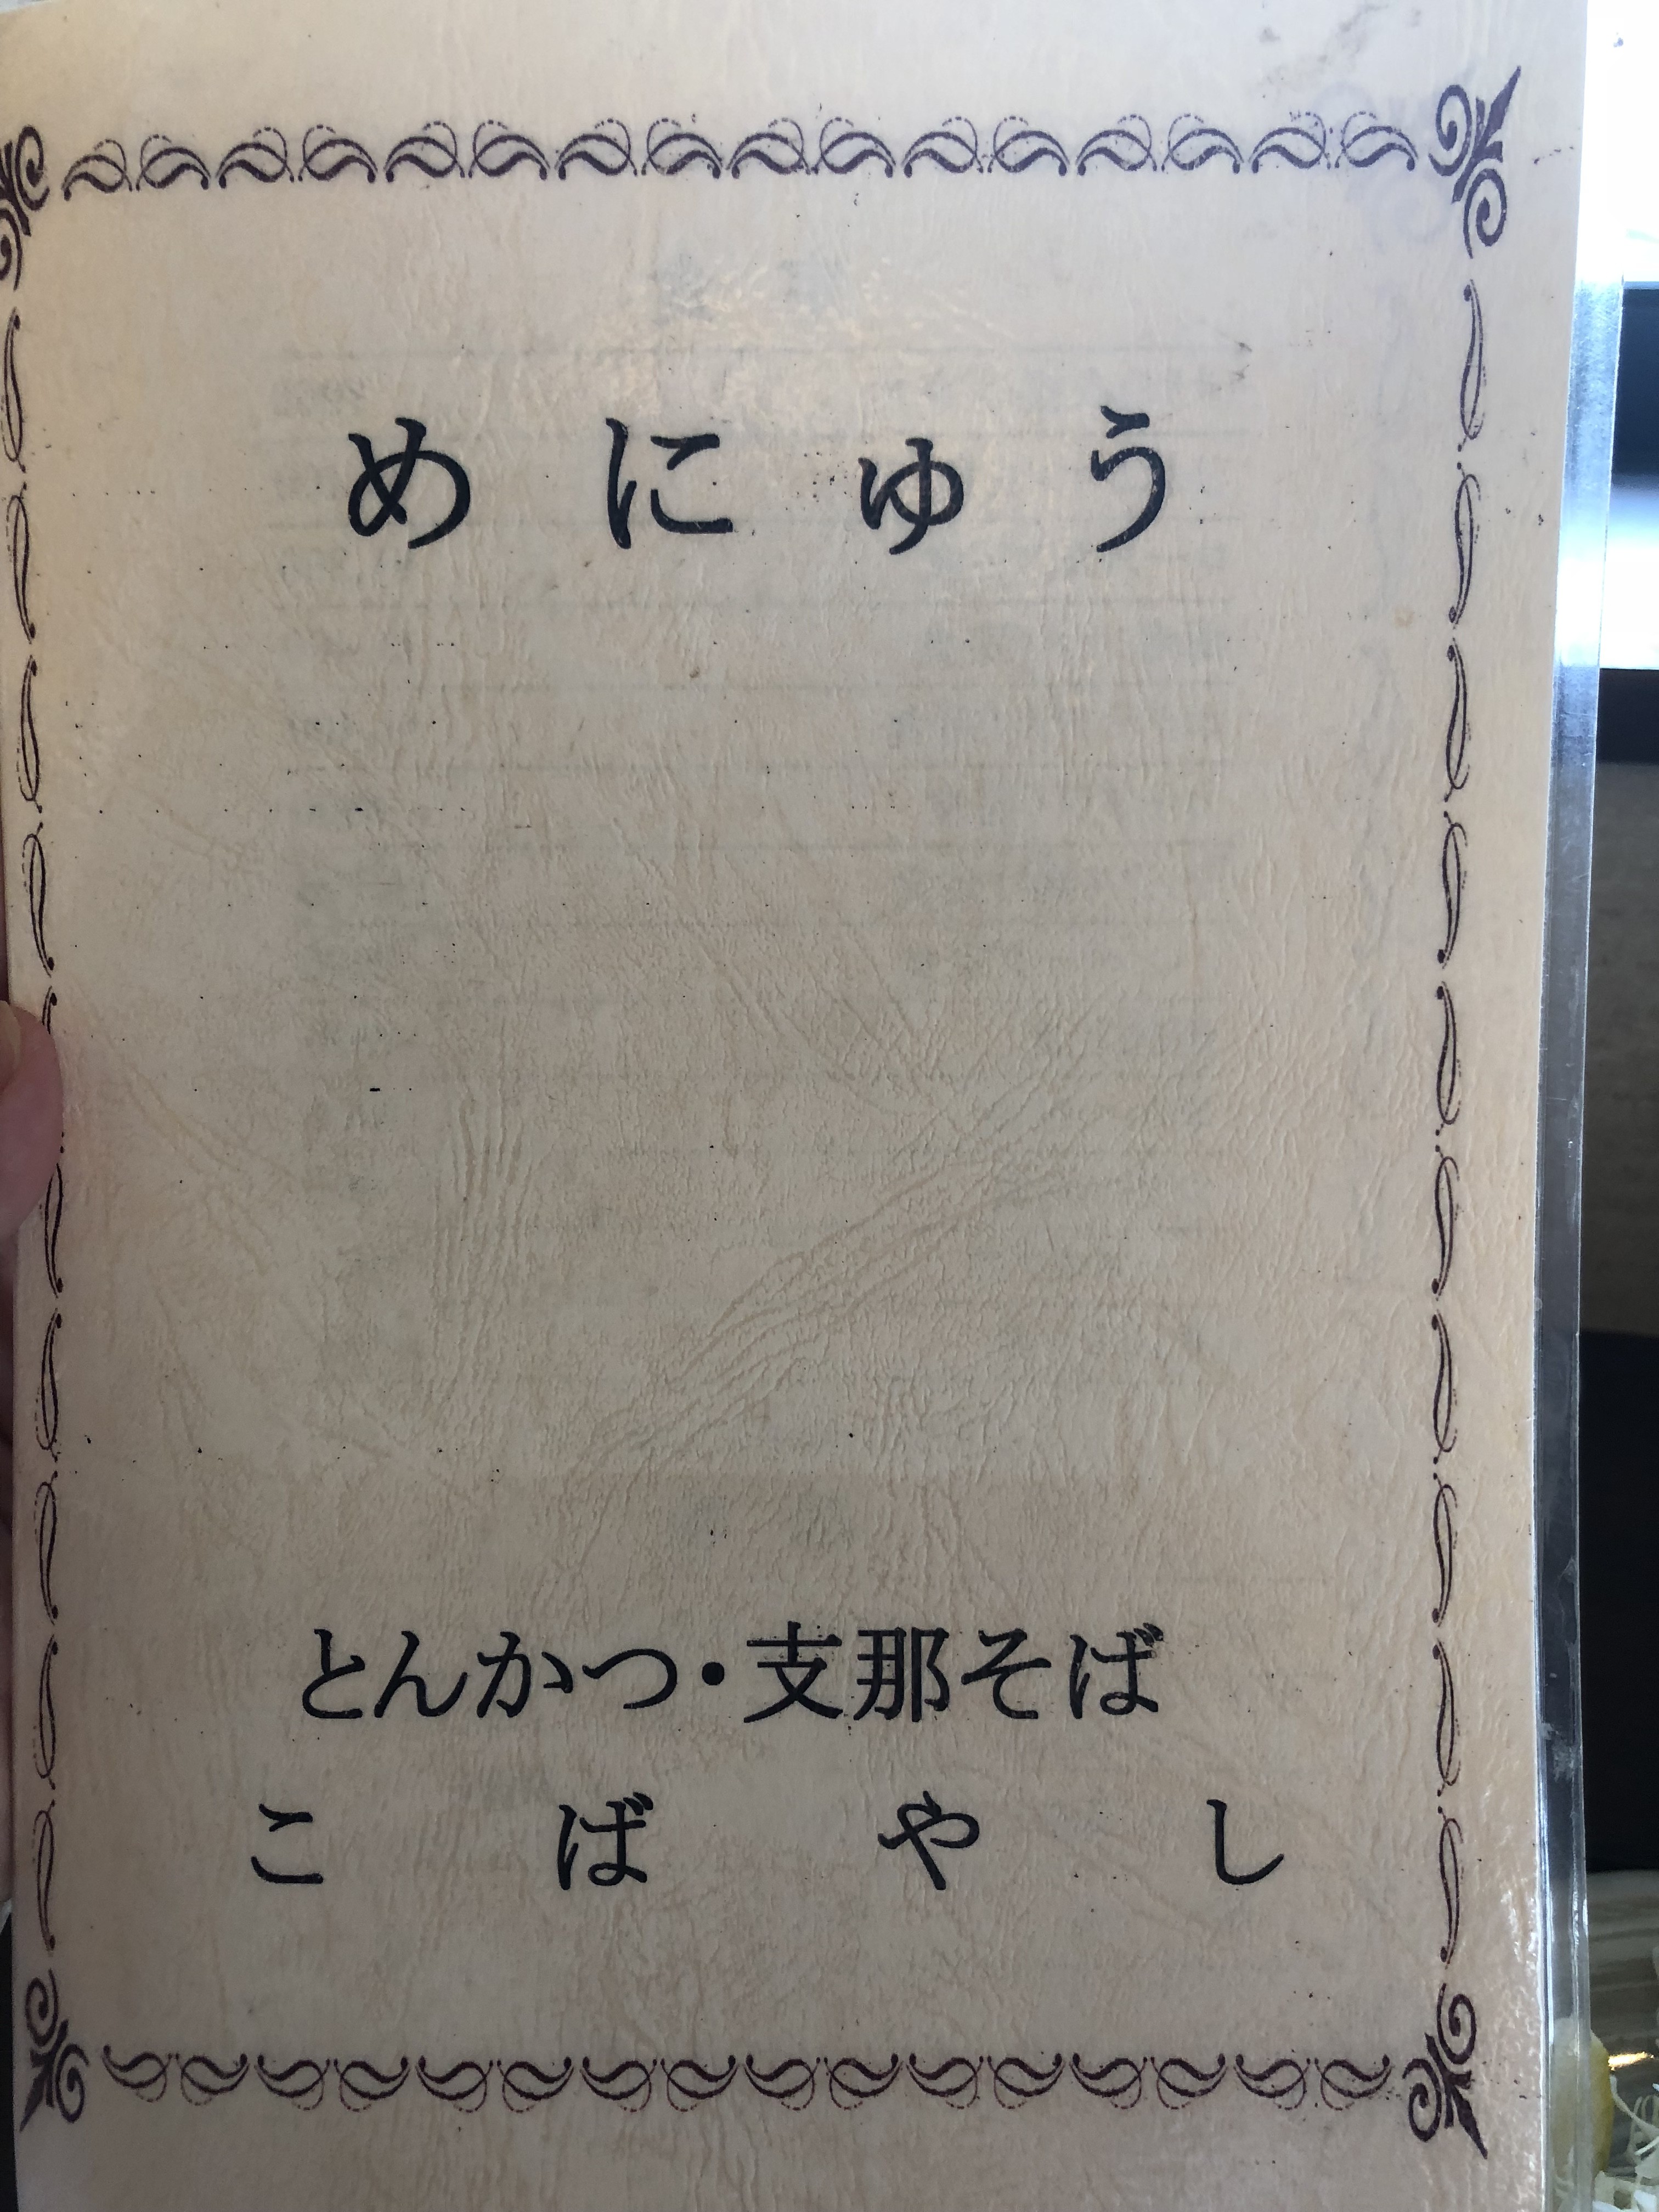 めにゅう
とんかつ・支那そば
こばやし